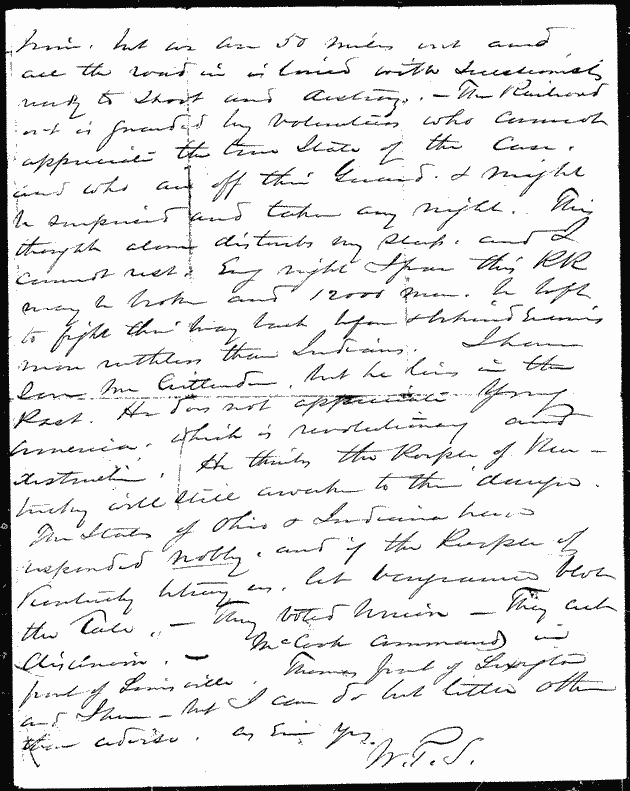 him. but we are 50 miles out and
all the road in is lined with Secessionists
ready to shoot and destroy. — The Railroad
out is guarded by volunteers who cannot
appreciate the true State of the Case.
and who are off their Guard. & might
be surprised and taken any night. This
thought alone disturbs my sleep. and I
cannot rest. Every night I fear this RR
may be broken and 12000 men. be left
to fight their way back before & behind Enemies
more ruthless than Indians. I have
seen Mr Crittenden. but he lives in the
Past. He does not appreciate Young
America. which is revolutionary and
destructive. He thinks the People of Ken-
tucky will still awake to the danger.
The States of Ohio & Indiana have
responded nobly. and if the People of
Kentucky betray us. let vengeance
the . — They voted Union — They act
Disunion. — McCook commands in
front of Louisville. Thomas front of Lexington
and I here — but I can do but little other
than advise. as Ever Yrs.
W.T.S.